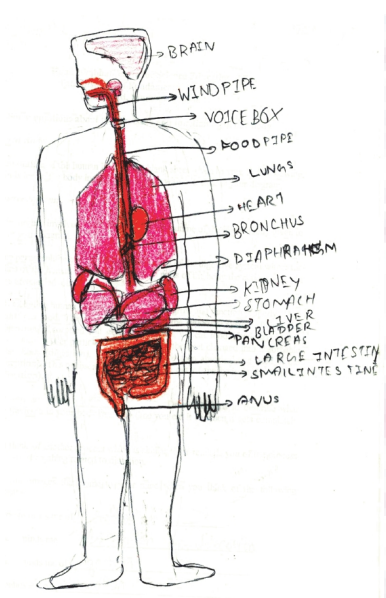 BRAIN
WINDPIPE
VOICE BOX
FOODPIPE
LUNGS
HEART
BRONCHUS
DIAPHRAHGM
KIDNEY
STOMACH
LIVER
BLADDER
PANCREAS
LARGE INTESTIN
SMALL INTESTINE
ANUS